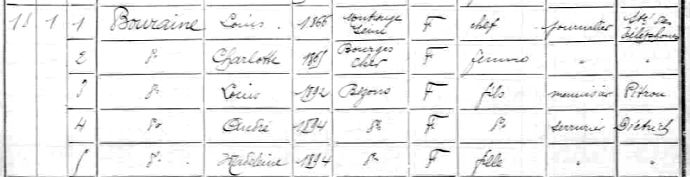 18 1 1 Bouraine Louis 1866 Montrouge Seine F chef journalier Sté des Téléphones
2 do Charlotte Bourges Cher F femme "  "
3 do Louis 1892 Bezons F fils menuisier Pitrou
4 do André 1894 do F do serrurier Dietrich
5 do Madeleine 1894 do F fille "  "